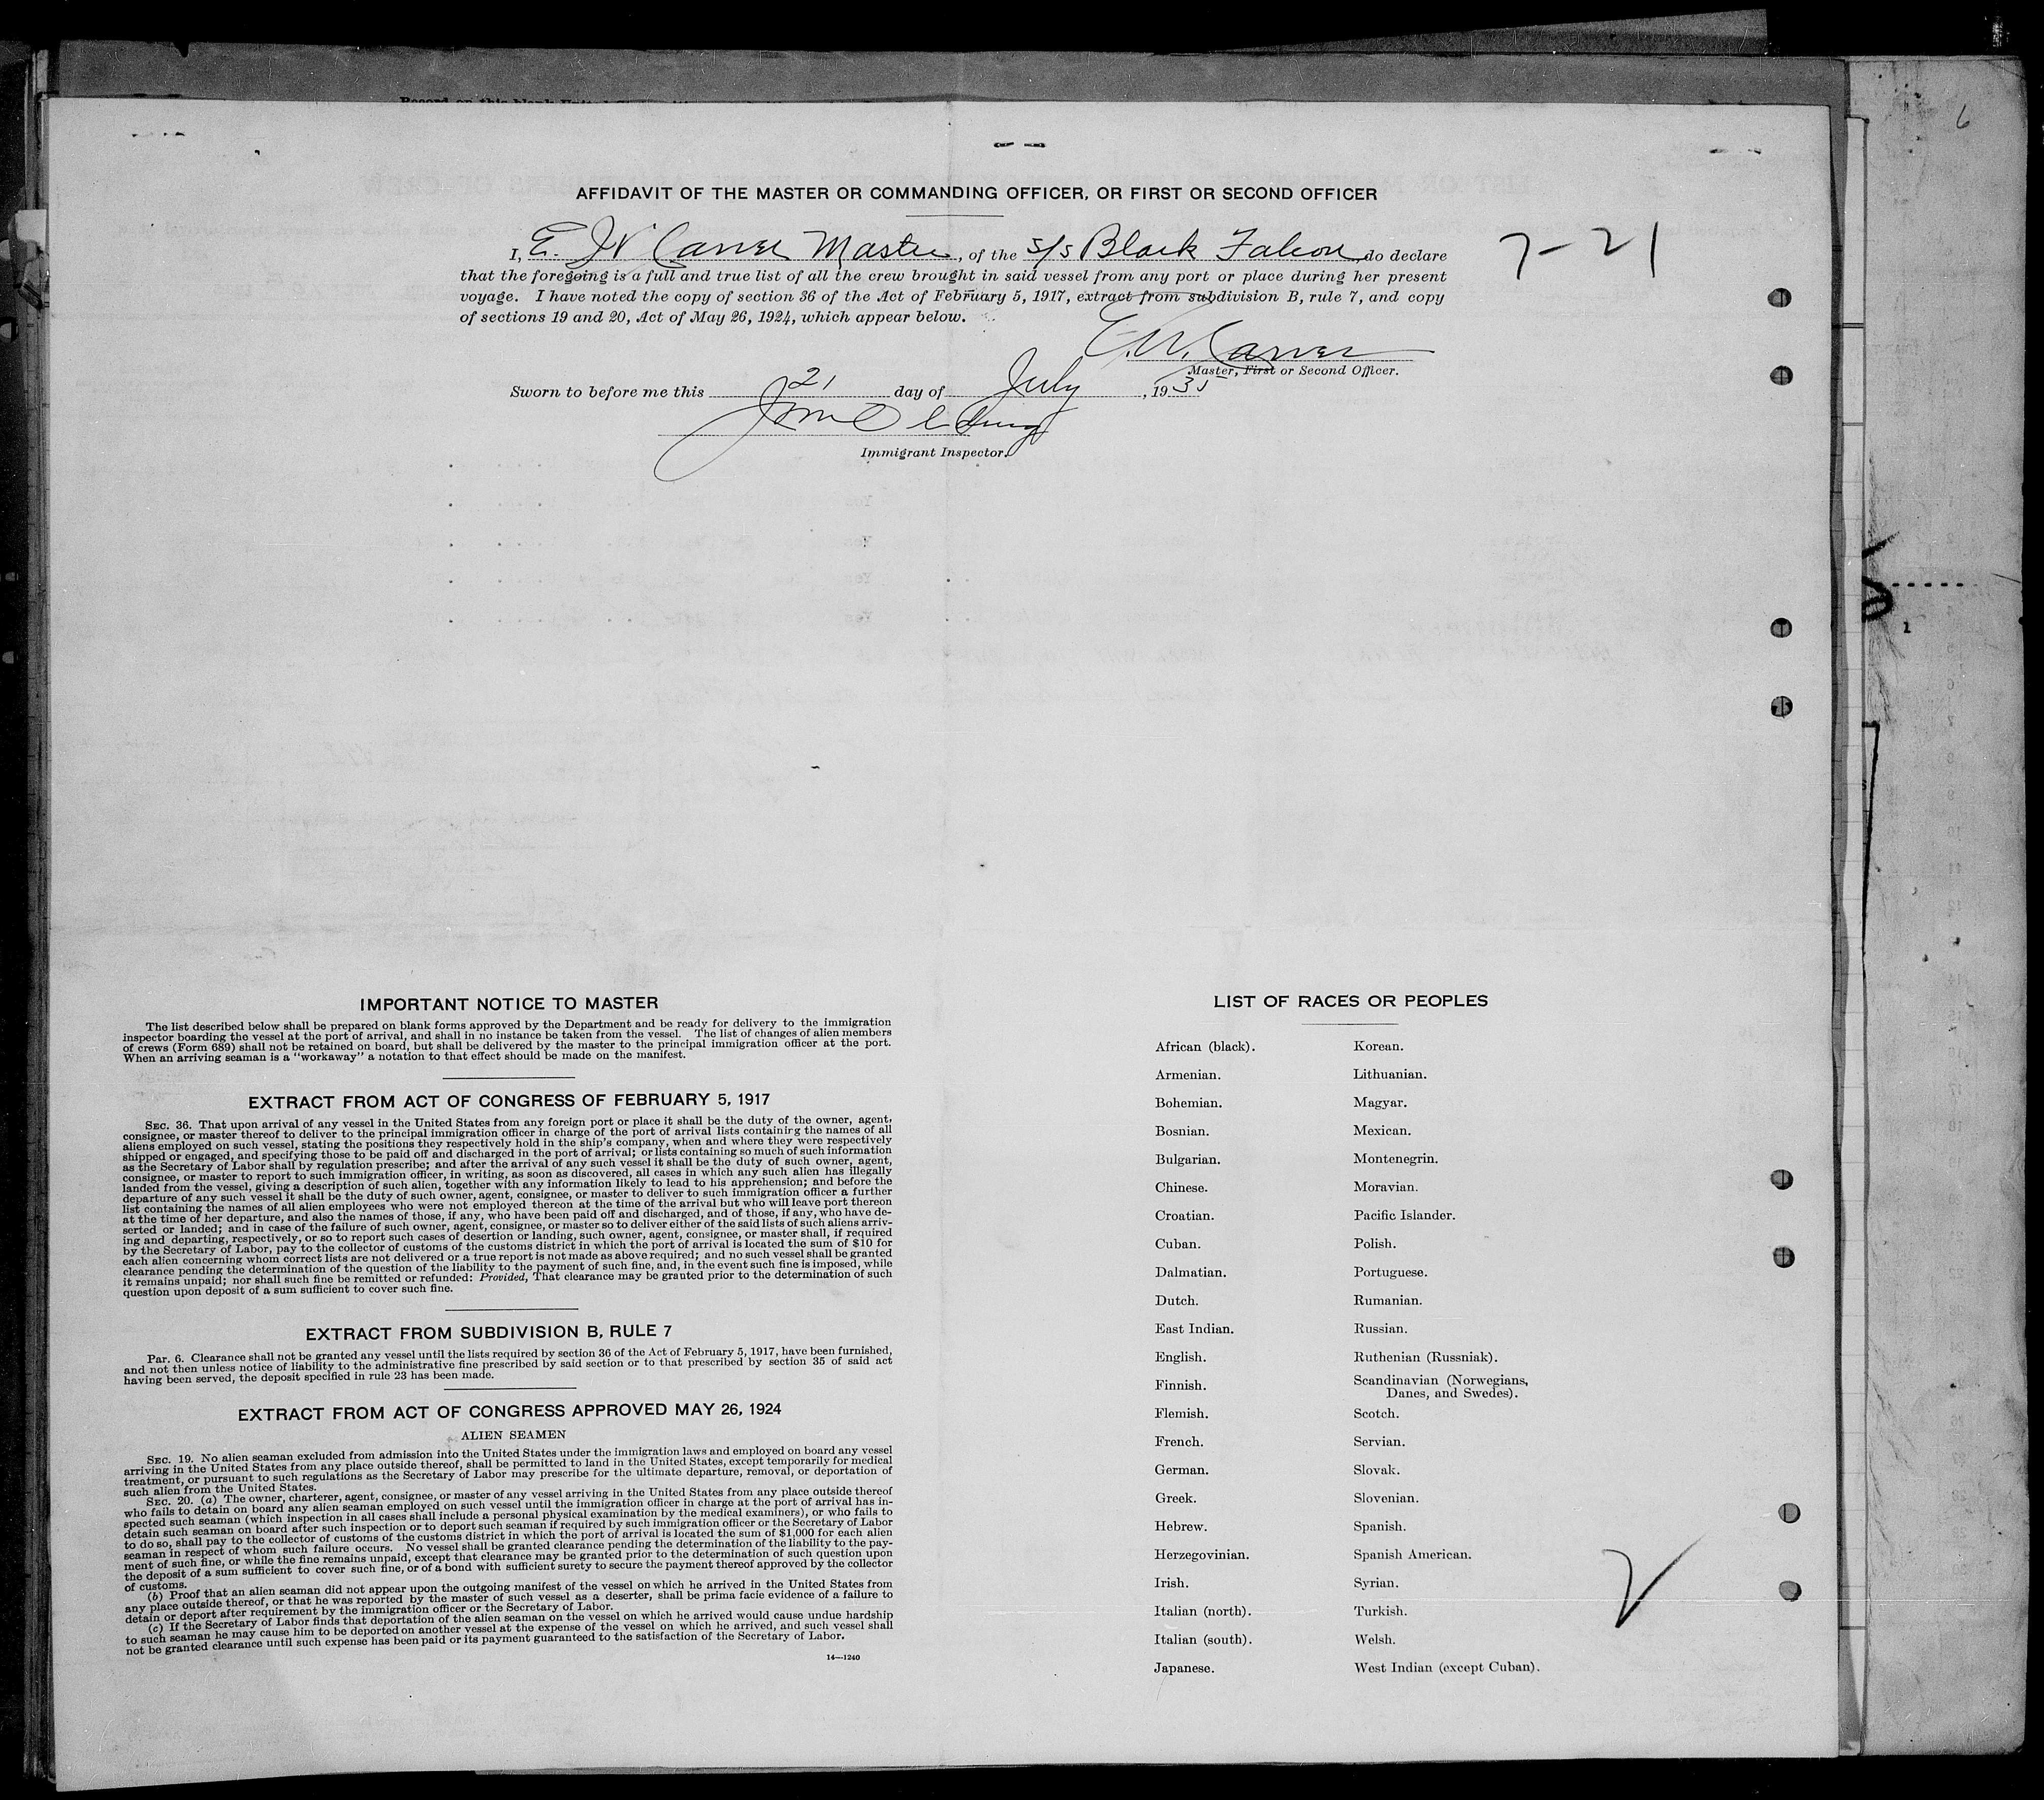 6
AFFIDAVIT OF THE MASTER OR COMMANDING OFFICER, OR FIRST OR SECOND OFFICER
I, E. W Carver Master, of the S/S Black Falcon, do declare
7-21
that the foregoing is a full and true list of all the crew brought in said vessel from any port or place during her present
voyage. I have noted the copy of section 36 of the Act of February 5, 1917, extract from subdivision B, rule 7, and copy
of sections 19 and 20, Act of May 26, 1924, which appear below.
E. W. Carver
Master, First or Second Officer.
Sworn to before me this 21 day of July, 1935
Immigrant Inspector.
IMPORTANT NOTICE TO MASTER
The list described below shall be prepared on blank forms approved by the Department and be ready for delivery to the immigration
inspector boarding the vessel at the port of arrival, and shall in no instance be taken from the vessel. The list of changes of alien members
of crews (Form 689) shall not be retained on board, but shall be delivered by the master to the principal immigration officer at the port.
When an arriving seaman is a "workaway" a notation to that effect should be made on the manifest.
EXTRACT FROM ACT OF CONGRESS OF FEBRUARY 5, 1917
SEC. 36. That upon arrival of any vessel in the United States from any foreign port or place it shall be the duty of the owner, agent,
consignee, or master thereof to deliver to the principal immigration officer in charge of the port of arrival lists containing the names of all
aliens employed on such vessel, stating the positions they respectively hold in the ship's company, when and where they were respectively
shipped or engaged, and specifying those to be paid off and discharged in the port of arrival; or lists containing so much of such information
as the Secretary of Labor shall by regulation prescribe; and after the arrival of any such vessel it shall be the duty of such owner, agent,
consignee, or master to report to such immigration officer, in writing, as soon as discovered, all cases in which any such alien has illegally
landed from the vessel, giving a description of such alien, together with any information likely to lead to his apprehension; and before the
departure of any such vessel it shall be the duty of such owner, agent, consignee, or master to deliver to such immigration officer a further
list containing the names of all alien employees who were not employed thereon at the time of the arrival but who will leave port thereon
at the time of her departure, and also the names of those, if any, who have been paid off and discharged, and of those, if any, who have de-
serted or landed; and in case of the failure of such owner, agent, consignee, or master so to deliver either of the said lists of such aliens arriv-
ing and departing, respectively, or so to report such cases of desertion or landing, such owner, agent, consignee, or master shall, if required
by the Secretary of Labor, pay to the collector of customs of the customs district in which the port of arrival is located the sum of $10 for
each alien concerning whom correct lists are not delivered or a true report is not made as above required; and no such vessel shall be granted
clearance pending the determination of the question of the liability to the payment of such fine, and, in the event such fine is imposed, while
it remains unpaid; nor shall such fine be remitted or refunded: Provided, That clearance may be granted prior to the determination of such
question upon deposit of a sum sufficient to cover such fine.
EXTRACT FROM SUBDIVISION B, RULE 7
Par. 6. Clearance shall not be granted any vessel until the lists required by section 36 of the Act of February 5, 1917, have been furnished,
and not then unless notice of liability to the administrative fine prescribed by said section or to that prescribed by section 35 of said act
having been served, the deposit specified in rule 23 has been made.
EXTRACT FROM ACT OF CONGRESS APPROVED MAY 26, 1924
ALIEN SEAMEN
SEC. 19. No alien seaman excluded from admission into the United States under the immigration laws and employed on board any vessel
arriving in the United States from any place outside thereof, shall be permitted to land in the United States, except temporarily for medical
treatment, or pursuant to such regulations as the Secretary of Labor may prescribe for the ultimate departure, removal, or deportation of
such alien from the United States.
SEC. 20. (a) The owner, charterer, agent, consignee, or master of any vessel arriving in the United States from any place outside thereof
who fails to detain on board any alien seaman employed on such vessel until the immigration officer in charge at the port of arrival has in-
spected such seaman (which inspection in all cases shall include a personal physical examination by the medical examiners), or who fails to
detain such seaman on board after such inspection or to deport such seaman if required by such immigration officer or the Secretary of Labor
to do so, shall pay to the collector of customs of the customs district in which the port of arrival is located the sum of $1,000 for each alien
seaman in respect of whom such failure occurs. No vessel shall be granted clearance pending the determination of the liability to the pay-
ment of such fine, or while the fine remains unpaid, except that clearance may be granted prior to the determination of such question upon
the deposit of a sum sufficient to cover such fine, or of a bond with sufficient surety to secure the payment thereof approved by the collector
of customs.
(b) Proof that an alien seaman did not appear upon the outgoing manifest of the vessel on which he arrived in the United States from
any place outside thereof, or that he was reported by the master of such vessel as a deserter, shall be prima facie evidence of a failure to
detain or deport after requirement by the immigration officer or the Secretary of Labor.
(c) If the Secretary of Labor finds that deportation of the alien seaman on the vessel on which he arrived would cause undue hardship
to such seaman he may cause him to be deported on another vessel at the expense of the vessel on which he arrived, and such vessel shall
not be granted clearance until such expense has been paid or its payment guaranteed to the satisfaction of the Secretary of Labor.
14—1240
LIST OF RACES OR PEOPLES
African (black).
Armenian.
Bohemian.
Bosnian.
Bulgarian.
Chinese.
Croatian.
Cuban.
Dalmatian.
Dutch.
East Indian.
English.
Finnish.
Flemish.
French.
German.
Greek.
Hebrew.
Herzegovinian.
Irish.
Italian (north).
Italian (south).
Japanese.
Korean.
Lithuanian.
Magyar.
Mexican.
Montenegrin.
Moravian.
Pacific Islander.
Polish.
Portuguese.
Rumanian.
Russian.
Ruthenian (Russniak).
Scandinavian (Norwegians,
Danes, and Swedes).
Scotch.
Servian.
Slovak.
Slovenian.
Spanish.
Spanish American.
Syrian.
Turkish.
Welsh.
West Indian (except Cuban).